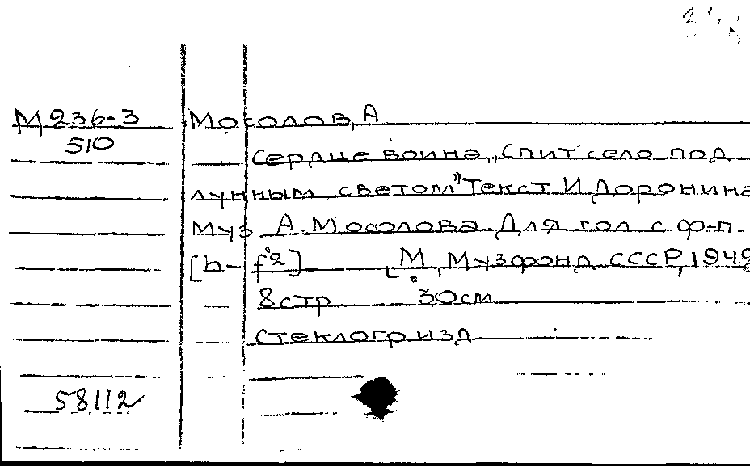 М236-3 Мосолов, А
510
Сердце воина „Спит село под
лунным светом" Текст И Доронина
Муз А. Мосолова. Для гол с ф-п.
[h-f²] М, Музфонд СССР, 1949
8 стр 30 см
Стеклогр изд
58112